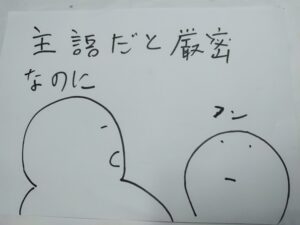 主語だと厳密
なのに
フン